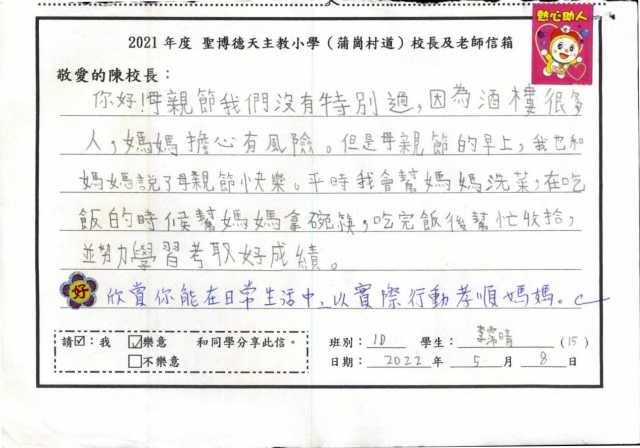 熱心助人
2021 年度 聖博德天主教小學(蒲崗村道)校長及老師信箱
敬愛的陳校長:
你好!母親節我們沒有特別過,因為酒樓很多
人,媽媽擔心有風險。但是母親節的早上,我也和
媽媽說了母親節快樂。平時我會幫媽媽洗菜,在吃
飯的時候幫媽媽拿碗筷,吃完飯後幫忙收拾,
並努力學習考取好成績。
好 欣賞你能在日常生活中,以實際行動孝順媽媽。
請☑:我 ☑樂意 和同學分享此信。 班別: 1D 學生: 李霈晴 (15)
□不樂意 日期: 2022 年 5 月 8 日